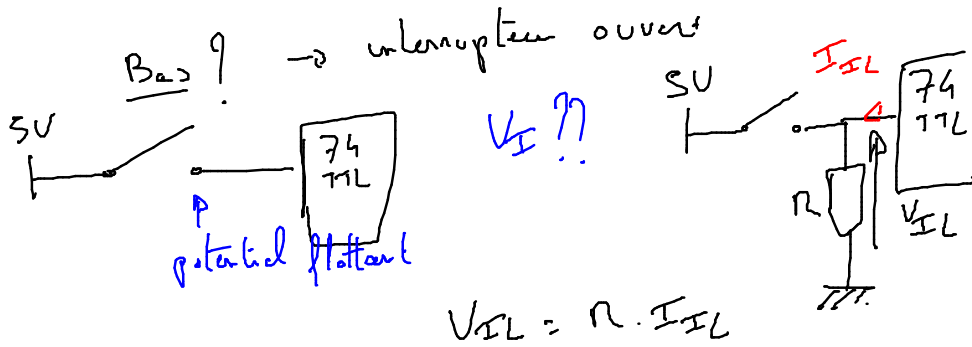 Bas ? → interrupteur ouvert
5V
74
TTL
potentiel flottant
V_I ??
5V
I_IL
74
TTL
R
V_IL
V_IL = R . I_IL